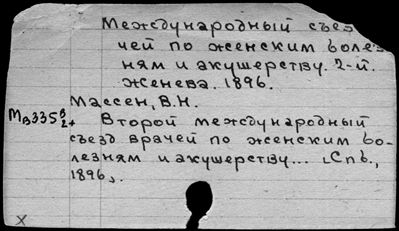 Международный съез
чей по женским болез
ням и акушерству. 2-й.
Женева. 1896.
Массен, В.Н.
Второй международный
съезд врачей по женским бо-
лезням и акушерству... [Спб.,
1896].
X